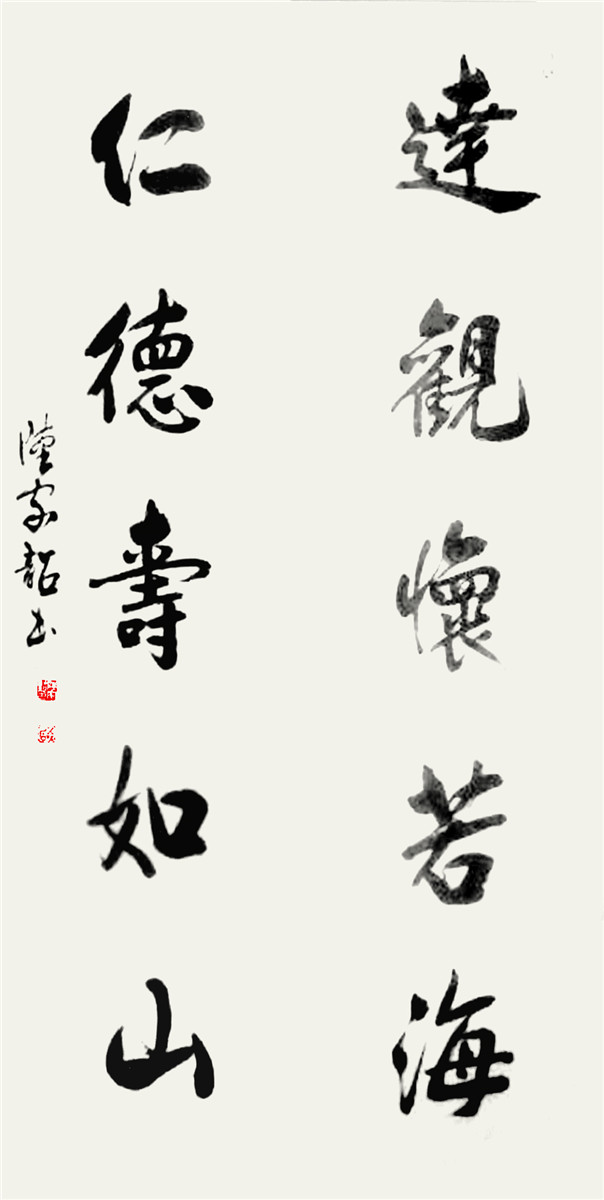 達觀懷若海
仁德壽如山
陸家韶书